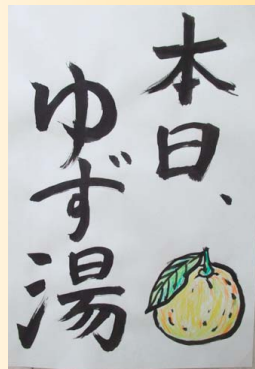 本日、
ゆず湯